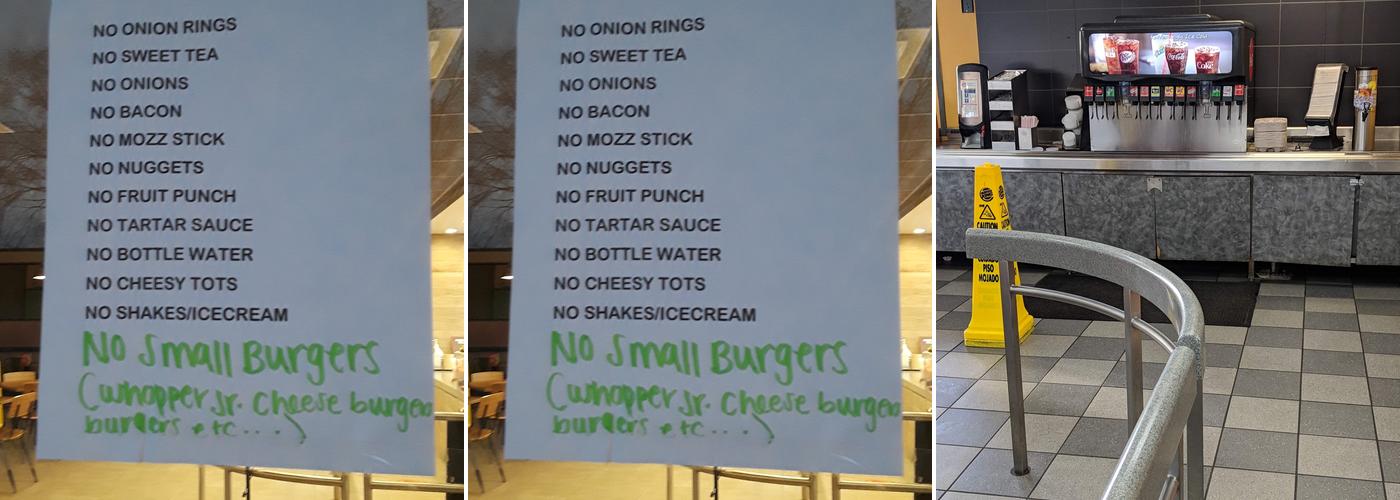 NO ONION RINGS
NO SWEET TEA
NO ONIONS
NO BACON
NO MOZZ STICK
NO NUGGETS
NO FRUIT PUNCH
NO TARTAR SAUCE
NO BOTTLE WATER
NO CHEESY TOTS
NO SHAKES/ICECREAM
No Small Burgers
(whopper Jr. Cheese burgers
burgers etc....)
NO ONION RINGS
NO SWEET TEA
NO ONIONS
NO BACON
NO MOZZ STICK
NO NUGGETS
NO FRUIT PUNCH
NO TARTAR SAUCE
NO BOTTLE WATER
NO CHEESY TOTS
NO SHAKES/ICECREAM
No Small Burgers
(whopper Jr. Cheese burgers
burgers etc....)
Coke
CAUTION
PISO
MOJADO